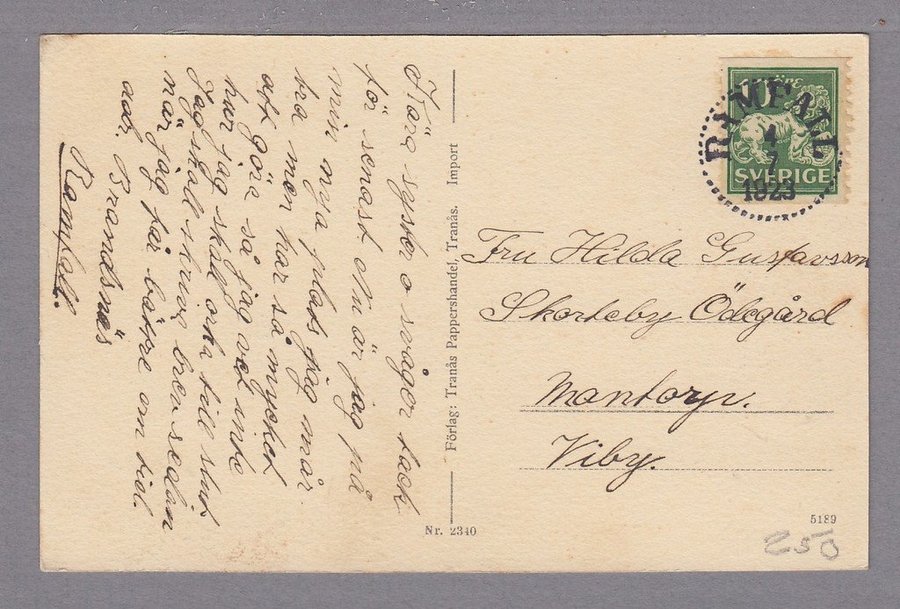 Kära syster o svåger tack
för senast Nu är jag på
min nya plats jag mår
bra men har så mycket
att göra så jag vet inte
hur jag skall orka till slut
Jag skall skriva brev sedan
när jag får bättre om tid.
adr, Brandsnäs
Ramfall.
Förlag: Tranås Pappershandel, Tranås. Import
Nr. 2340
RAMFALL
4
7
1923
10
SVERIGE
Fru Hilda Gustavsson
Skorteby Ödegård
Mantorp.
Viby.
5189
250